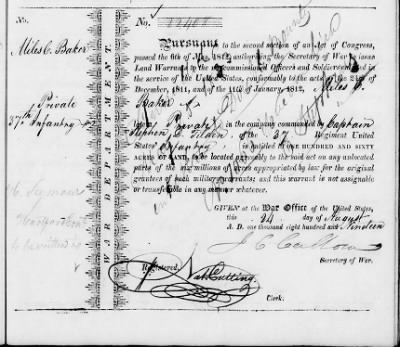 No.
No. 12408
Miles C. Baker
Private
37th Infantry
WAR DEPARTMENT.
Pursuant to the second section of an Act of Congress,
passed the 6th of May, 1812, authorising the Secretary of War to issue
Land Warrants to the non-commissioned Officers and Soldiers enlisted in
the service of the United States, conformably to acts of the 24th of
December, 1811, and of the 11th of January, 1812, Miles C.
Baker
late a Private in the company commanded by Captain
Stephen D. Tilden of the 37 Regiment United
States' Infantry is entitled to ONE HUNDRED AND SIXTY
ACRES OF LAND, to be located agreeably to the said act on any unlocated
parts of the six millions of acres appropriated by law for the original
grantees of such military warrants; and this warrant is not assignable
or transferable in any manner whatever.
GIVEN at the War Office of the United States,
this 24 day of August
A. D. one thousand eight hundred and Nineteen
J. C. Calhoun
Secretary of War.
Registered,
Nat. Cutting
Clerk.
Seymour
Hartford